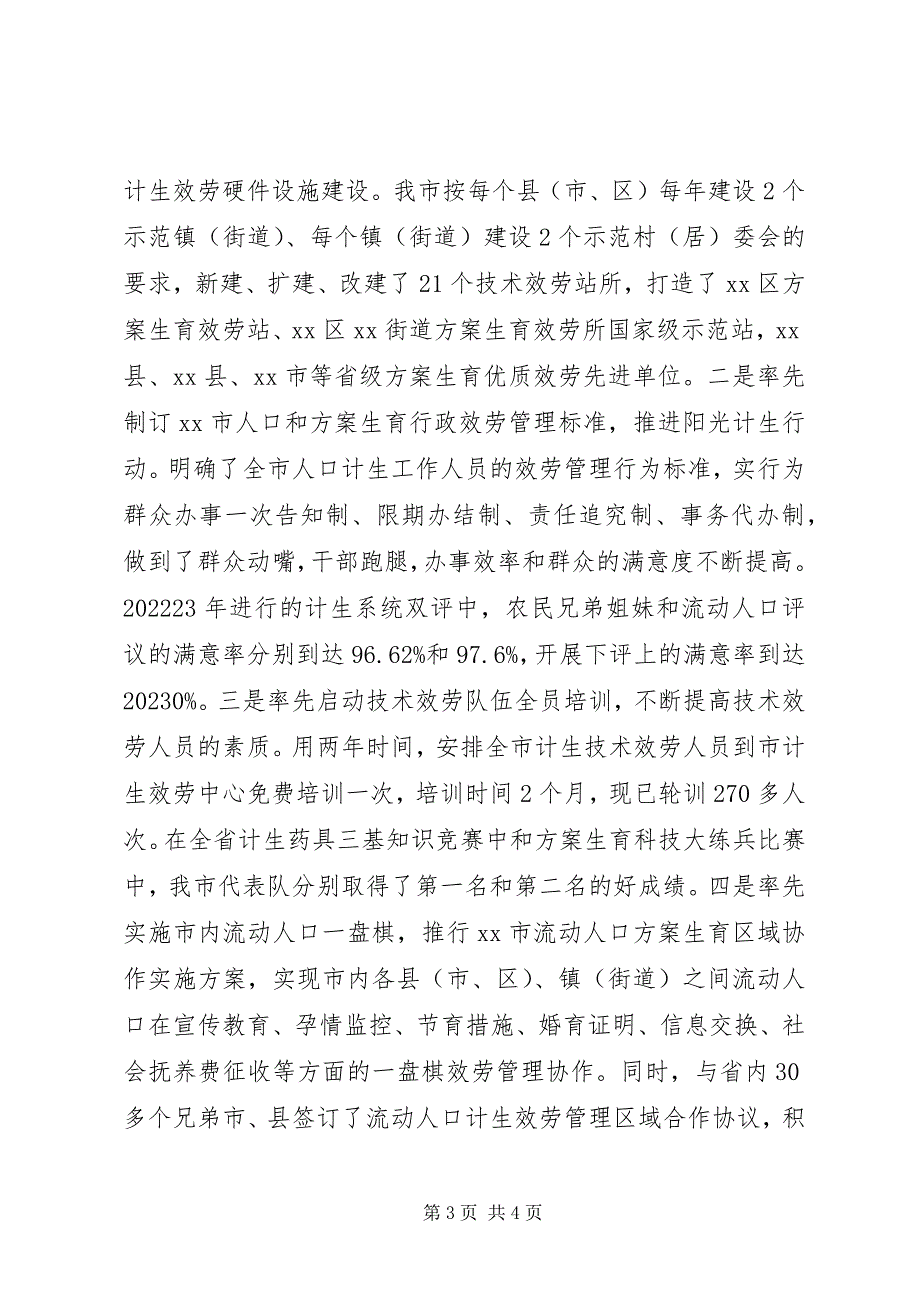 计生效劳硬件设施建设。我市按每个县（市、区）每年建设 2 个
示范镇（街道）、每个镇（街道）建设 2 个示范村（居）委会的
要求，新建、扩建、改建了 21 个技术效劳站所，打造了 xx 区方
案生育效劳站、xx 区 xx 街道方案生育效劳所国家级示范站，xx
县、xx 县、xx 市等省级方案生育优质效劳先进单位。二是率先
制订 xx 市人口和方案生育行政效劳管理标准，推进阳光计生行
动。明确了全市人口计生工作人员的效劳管理行为标准，实行为
群众办事一次告知制、限期办结制、责任追究制、事务代办制，
做到了群众动嘴，干部跑腿，办事效率和群众的满意度不断提高。
202223 年进行的计生系统双评中，农民兄弟姐妹和流动人口评
议的满意率分别到达 96.62%和 97.6%，开展下评上的满意率到达
20230%。三是率先启动技术效劳队伍全员培训，不断提高技术效
劳人员的素质。用两年时间，安排全市计生技术效劳人员到市计
生效劳中心免费培训一次，培训时间 2 个月，现已轮训 270 多人
次。在全省计生药具三基知识竞赛中和方案生育科技大练兵比赛
中，我市代表队分别取得了第一名和第二名的好成绩。四是率先
实施市内流动人口一盘棋，推行 xx 市流动人口方案生育区域协
作实施方案，实现市内各县（市、区）、镇（街道）之间流动人
口在宣传教育、孕情监控、节育措施、婚育证明、信息交换、社
会抚养费征收等方面的一盘棋效劳管理协作。同时，与省内 30
多个兄弟市、县签订了流动人口计生效劳管理区域合作协议，积
第 3 页 共 4 页